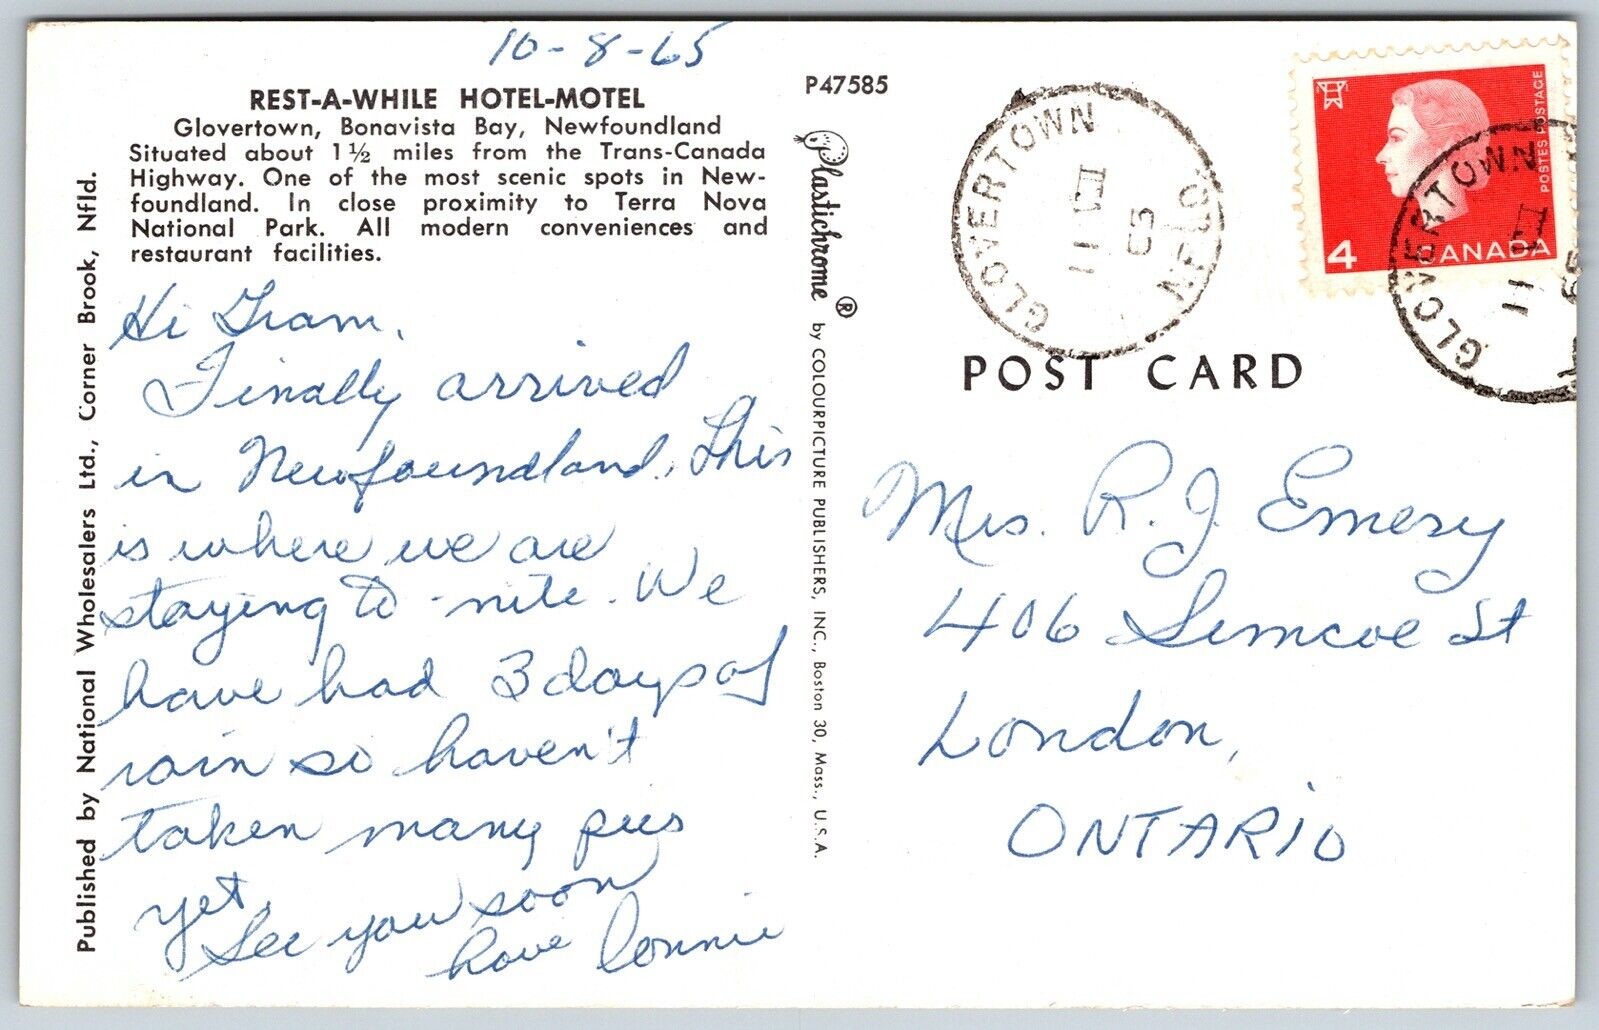 10-8-65
REST-A-WHILE HOTEL-MOTEL
Glovertown, Bonavista Bay, Newfoundland
Situated about 1½ miles from the Trans-Canada
Highway. One of the most scenic spots in New-
foundland. In close proximity to Terra Nova
National Park. All modern conveniences and
restaurant facilities.
Hi Gram,
Finally arrived
in Newfoundland. This
is where we are
staying to-nite. We
have had 3 days of
rain so haven't
taken many pics
yet.
See you soon
love Connie
Published by National Wholesalers Ltd., Corner Brook, Nfld.
P47585
Plastichrome® by COLOURPICTURE PUBLISHERS, INC., Boston 30, Mass., U.S.A.
GLOVERTOWN
NFLD
11 VIII
65
4 CANADA
POSTES POSTAGE
GLOVERTOWN
11
65
POST CARD
Mrs. R. J. Emery
406 Simcoe St
London,
ONTARIO